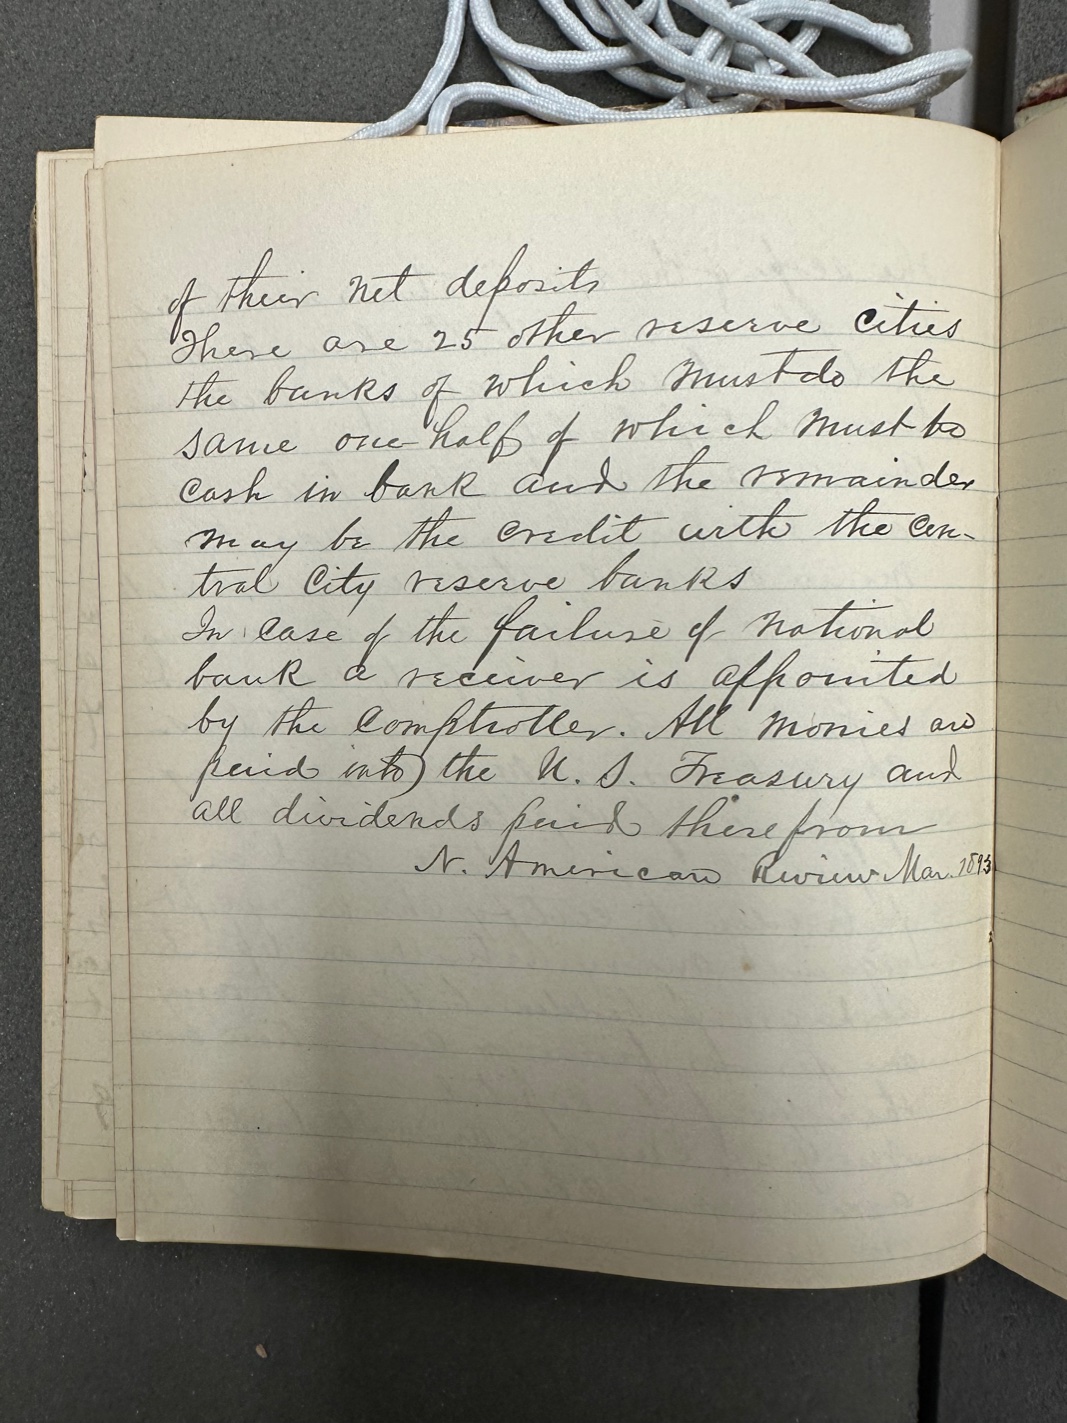 of their net deposits
There are 25 other reserve cities
the banks of which must do the
same one half of which must be
cash in bank and the remainder
may be the credit with the cen-
tral city reserve banks
In case of the failure of national
bank a receiver is appointed
by the Comptroller. All monies are
paid into) the U. S. Treasury and
all dividends paid therefrom
N. American Review Mar. 1893